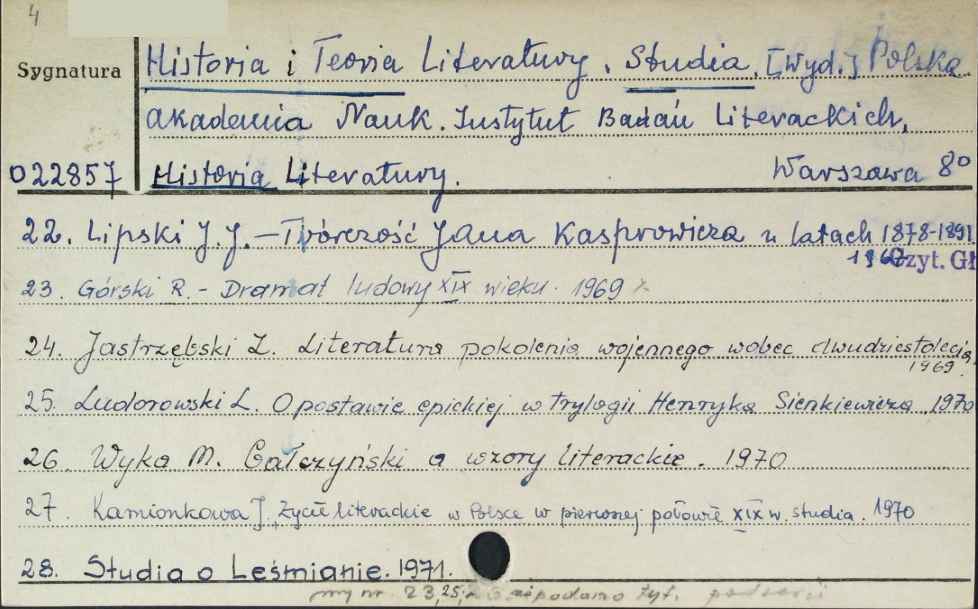 4
Sygnatura
Historia i Teoria Literatury. Studia. [Wyd.] Polska
Akademia Nauk. Instytut Badań Literackich,
022857 Historia Literatury. Warszawa 8°
22. Lipski J.J. – Twórczość Jana Kasprowicza w latach 1878-1891
1967 Czyt. Gł
23. Górski R. - Dramat ludowy XIX wieku. 1969
24. Jastrzębski Z. Literatura pokolenia wojennego wobec dwudziestolecia
1969.
25. Ludorowski L. O postawie epickiej w trylogii Henryka Sienkiewicza 1970
26. Wyka M. Gałczyński a wzory literackie. 1970
27. Kamionkowa J. Życie literackie w Polsce w pierwszej połowie XIX w. studia. 1970
28. Studia o Leśmianie. 1971.
przy nr. 23, 25, 26 nie podano tyt.